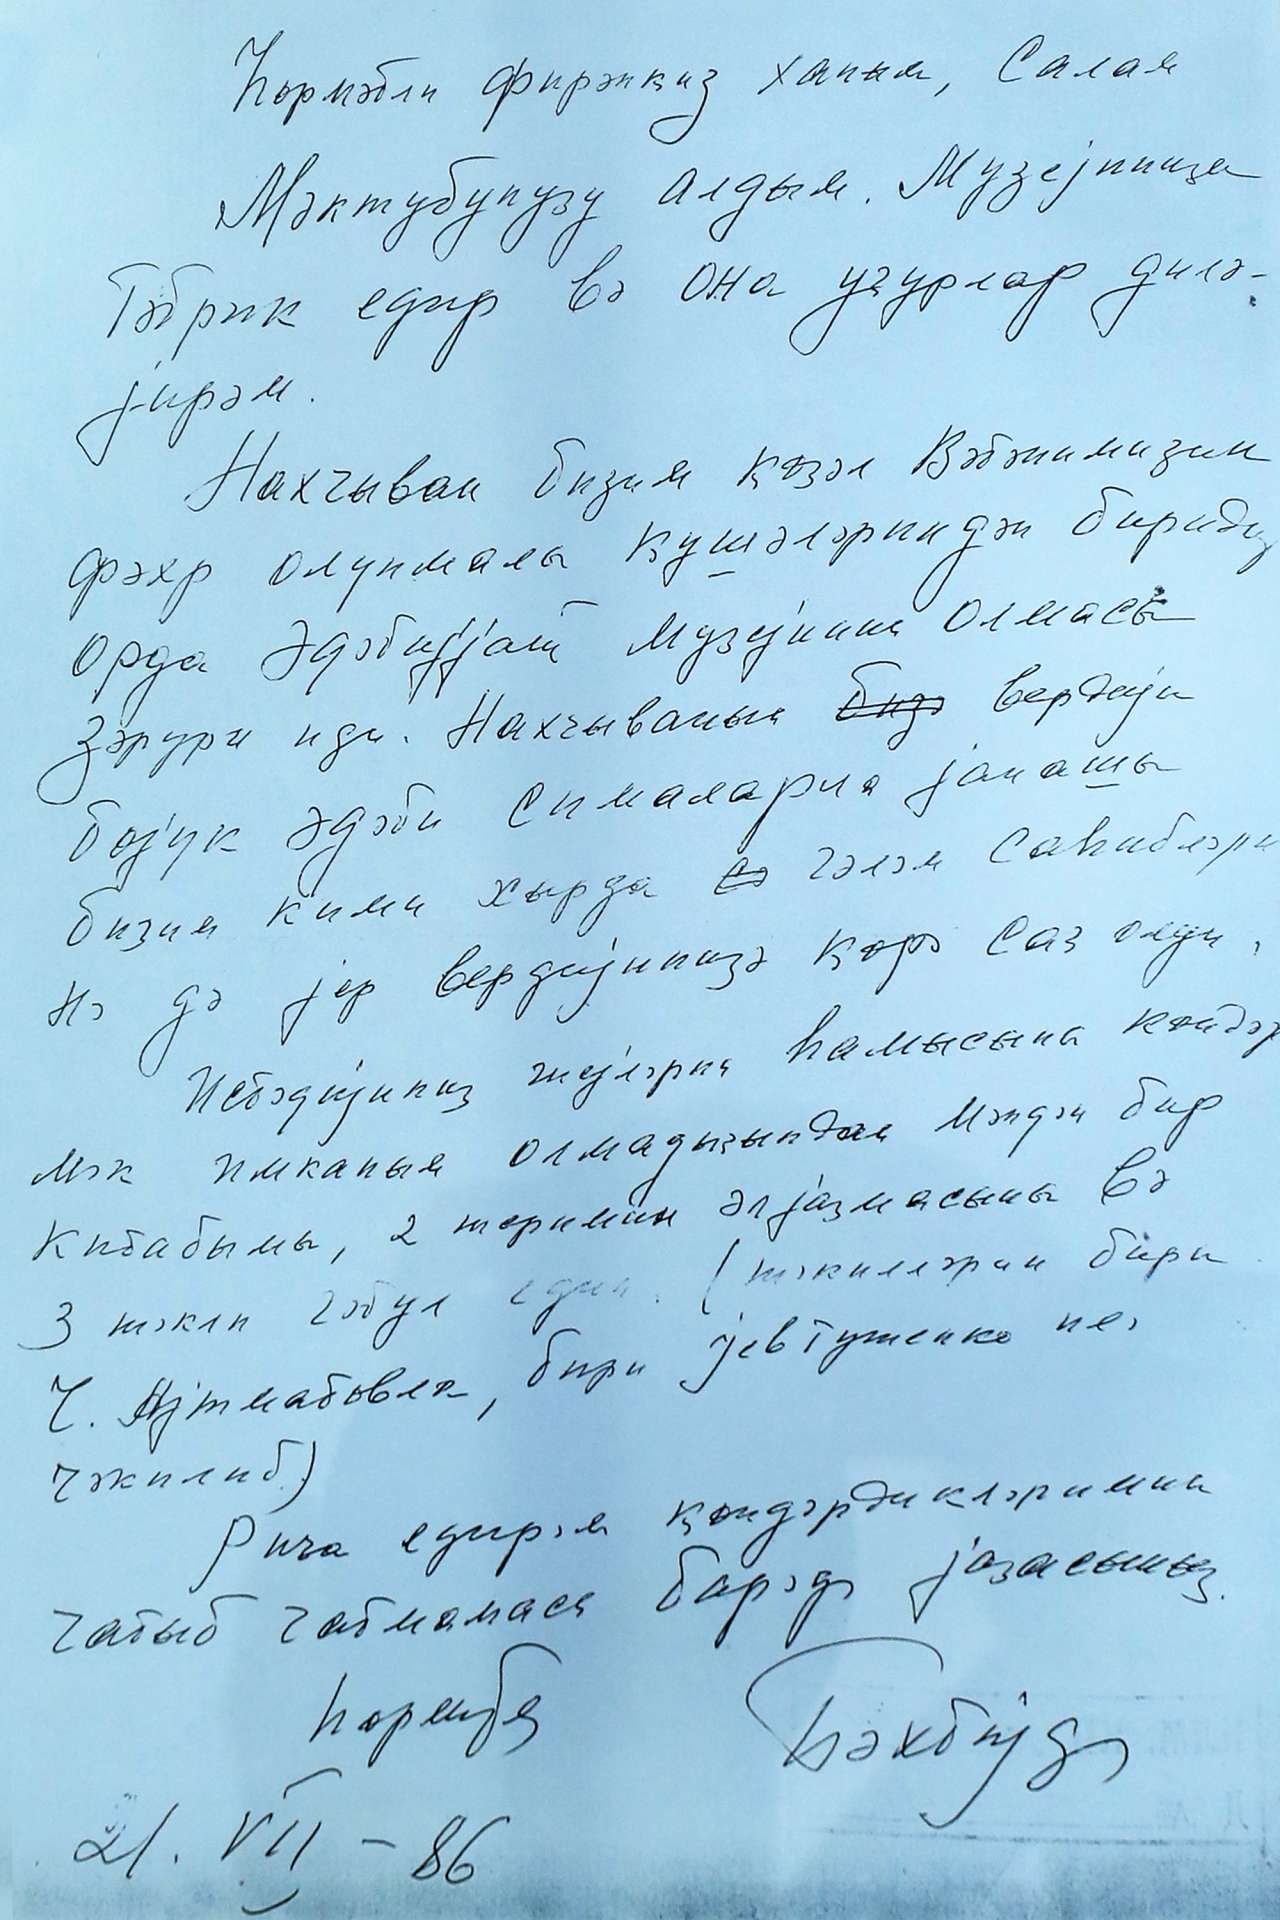 Һөрмәтли Фирәнкиз ханым, Салам
Мәктубунузу алдым. Музејинизи
Тәбрик едир вә она уғурлар дилә-
јирәм.
Нахчыван бизим ҝөзәл Вәтәнимизин
фәхр олунмалы ҝушәләриндән биридир
Орда Әдәбијјат Музејинин олмасы
Зәрури иди. Нахчыванын бизә вердији
бөјүк әдәби сималарла јанашы
бизим кими хырда гәләм саһибләри
нә дә јер вердијинизә ҝөрә саз олун.
Истәдијиниз шејләрин һамысыны ҝөндәр
мәк имканым олмадығындан мәндән бир
китабымы, 2 шеримин әлјазмасыны вә
3 шәкли гәбул един. (шәкилләрин бири
Ч. Ајтматовла, бири Јевтушенко илә
чәкилиб)
Рича едирәм ҝөндәрдикләримин
чатыб чатмамасы барәдә јазасыныз.
Һөрмәтлә
Бәхтијар
21. VII – 86